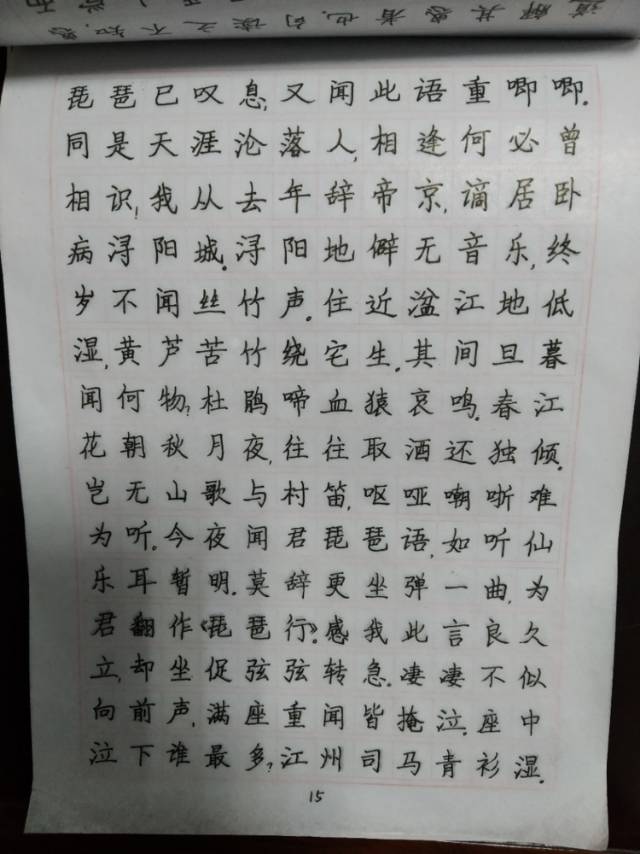 道解其惑者也.句读之不知,惑
琵琶已叹息,又闻此语重唧唧.
同是天涯沦落人,相逢何必曾
相识!我从去年辞帝京,谪居卧
病浔阳城.浔阳地僻无音乐,终
岁不闻丝竹声.住近湓江地低
湿,黄芦苦竹绕宅生.其间旦暮
闻何物?杜鹃啼血猿哀鸣.春江
花朝秋月夜,往往取酒还独倾.
岂无山歌与村笛,呕哑嘲哳难
为听.今夜闻君琵琶语,如听仙
乐耳暂明.莫辞更坐弹一曲,为
君翻作《琵琶行》.感我此言良久
立,却坐促弦弦转急.凄凄不似
向前声,满座重闻皆掩泣.座中
泣下谁最多?江州司马青衫湿.
15